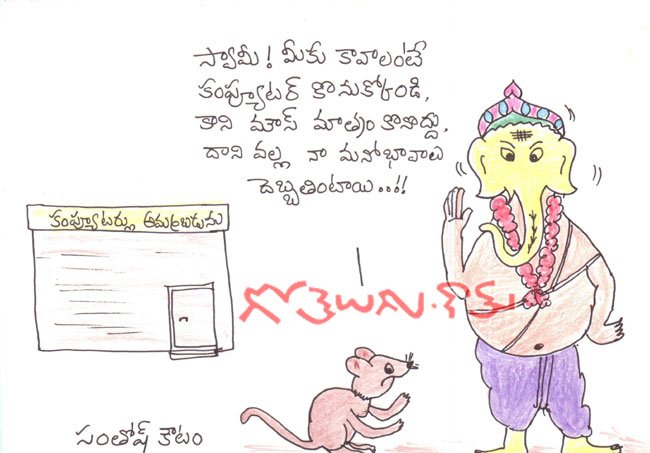 స్వామీ! మీకు కావాలంటే
కంప్యూటర్ కొనుక్కోండి,
కాని మౌస్ మాత్రం కొనొద్దు,
దాని వల్ల నా మనోభావాలు
దెబ్బతింటాయి...!!
కంప్యూటర్లు అమ్మబడును
గోతెలుగు.కామ్
సంతోష్ కౌటం